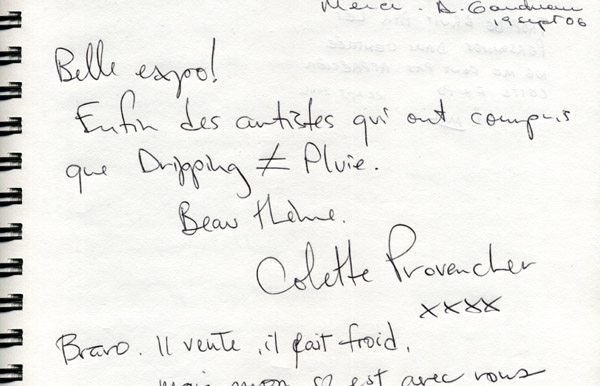 Merci. A. Gaudreau
19 sept 06
Belle expo!
Enfin des artistes qui ont compris
que Dripping ≠ Pluie.
Beau thème.
Colette Provencher
xxxx
Bravo. Il vente, il fait froid,
mais mon est avec vous